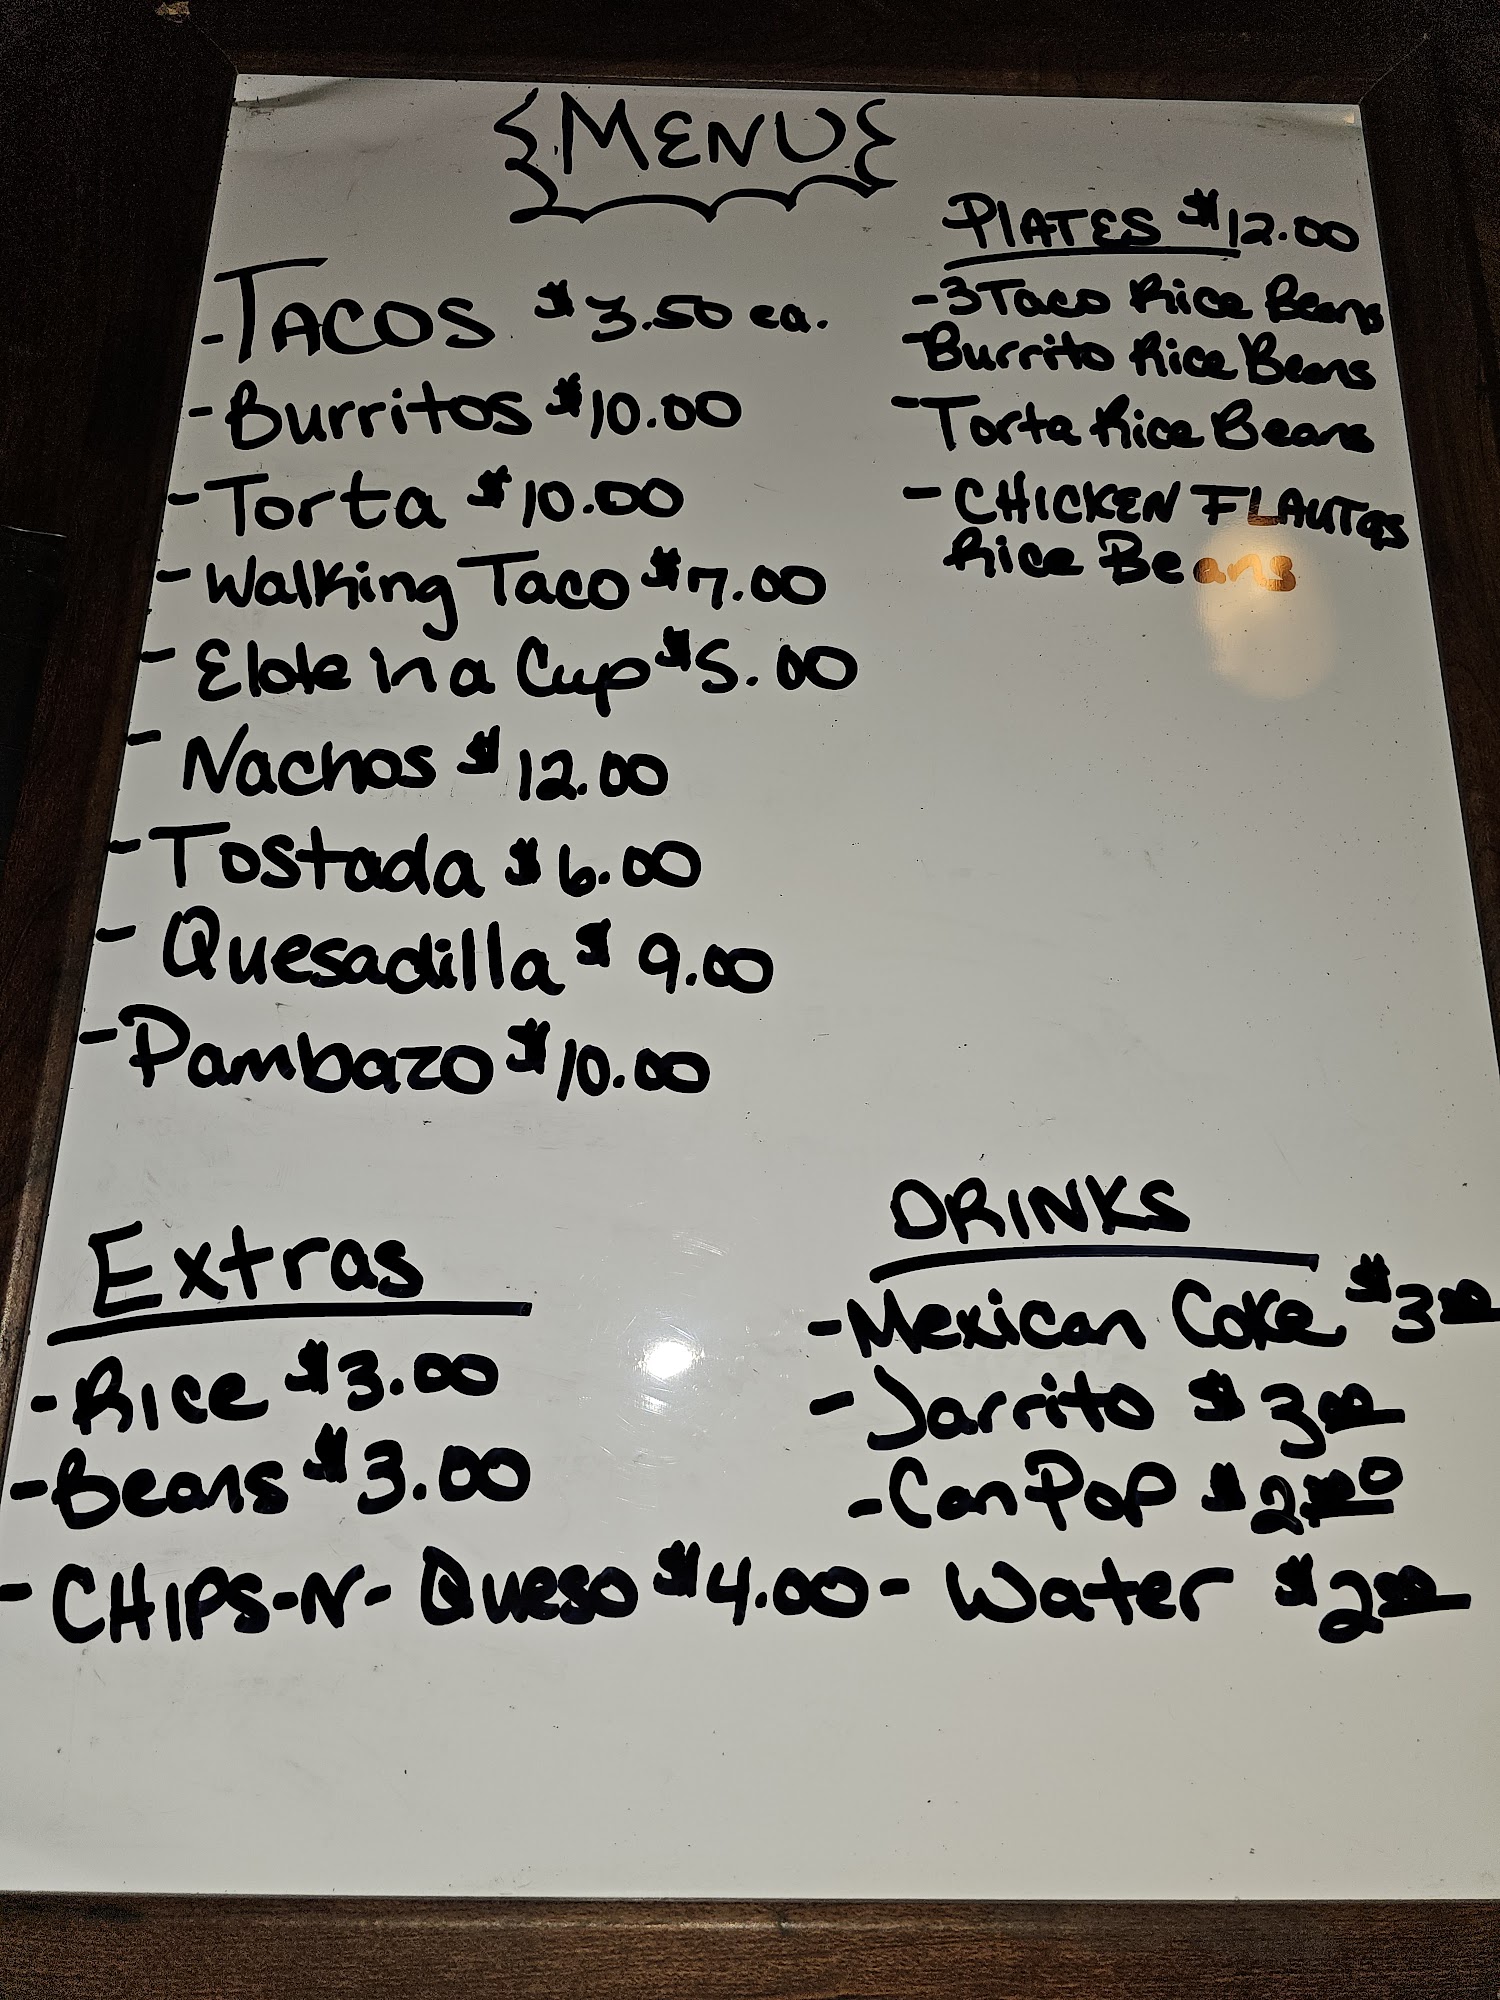 MENU
- TACOS $3.50 ea.
- Burritos $10.00
- Torta $10.00
- Walking Taco $7.00
- Elote in a Cup $5.00
- Nachos $12.00
- Tostada $6.00
- Quesadilla $9.00
- Pambazo $10.00
PLATES $12.00
- 3 Taco Rice Beans
- Burrito Rice Beans
- Torta Rice Beans
- CHICKEN FLAUTas
Rice Beans
Extras
- Rice $3.00
- Beans $3.00
- CHIPS-N-Queso $4.00
DRINKS
- Mexican Coke $3.00
- Jarrito $3.00
- Can Pop $2.00
- Water $2.00